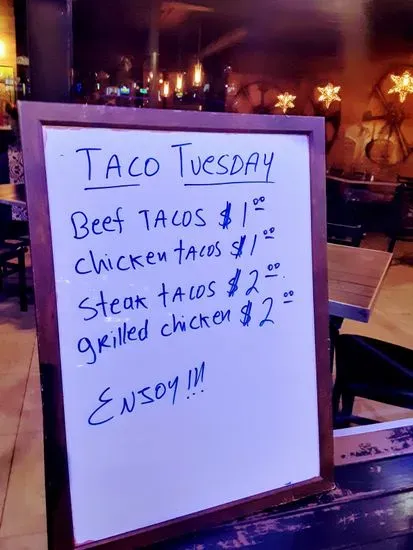 TACO TUESDAY
Beef TACOS $1.00
chicken tacos $1.00
Steak tacos $2.00.
grilled chicken $2.00
ENJOY!!!